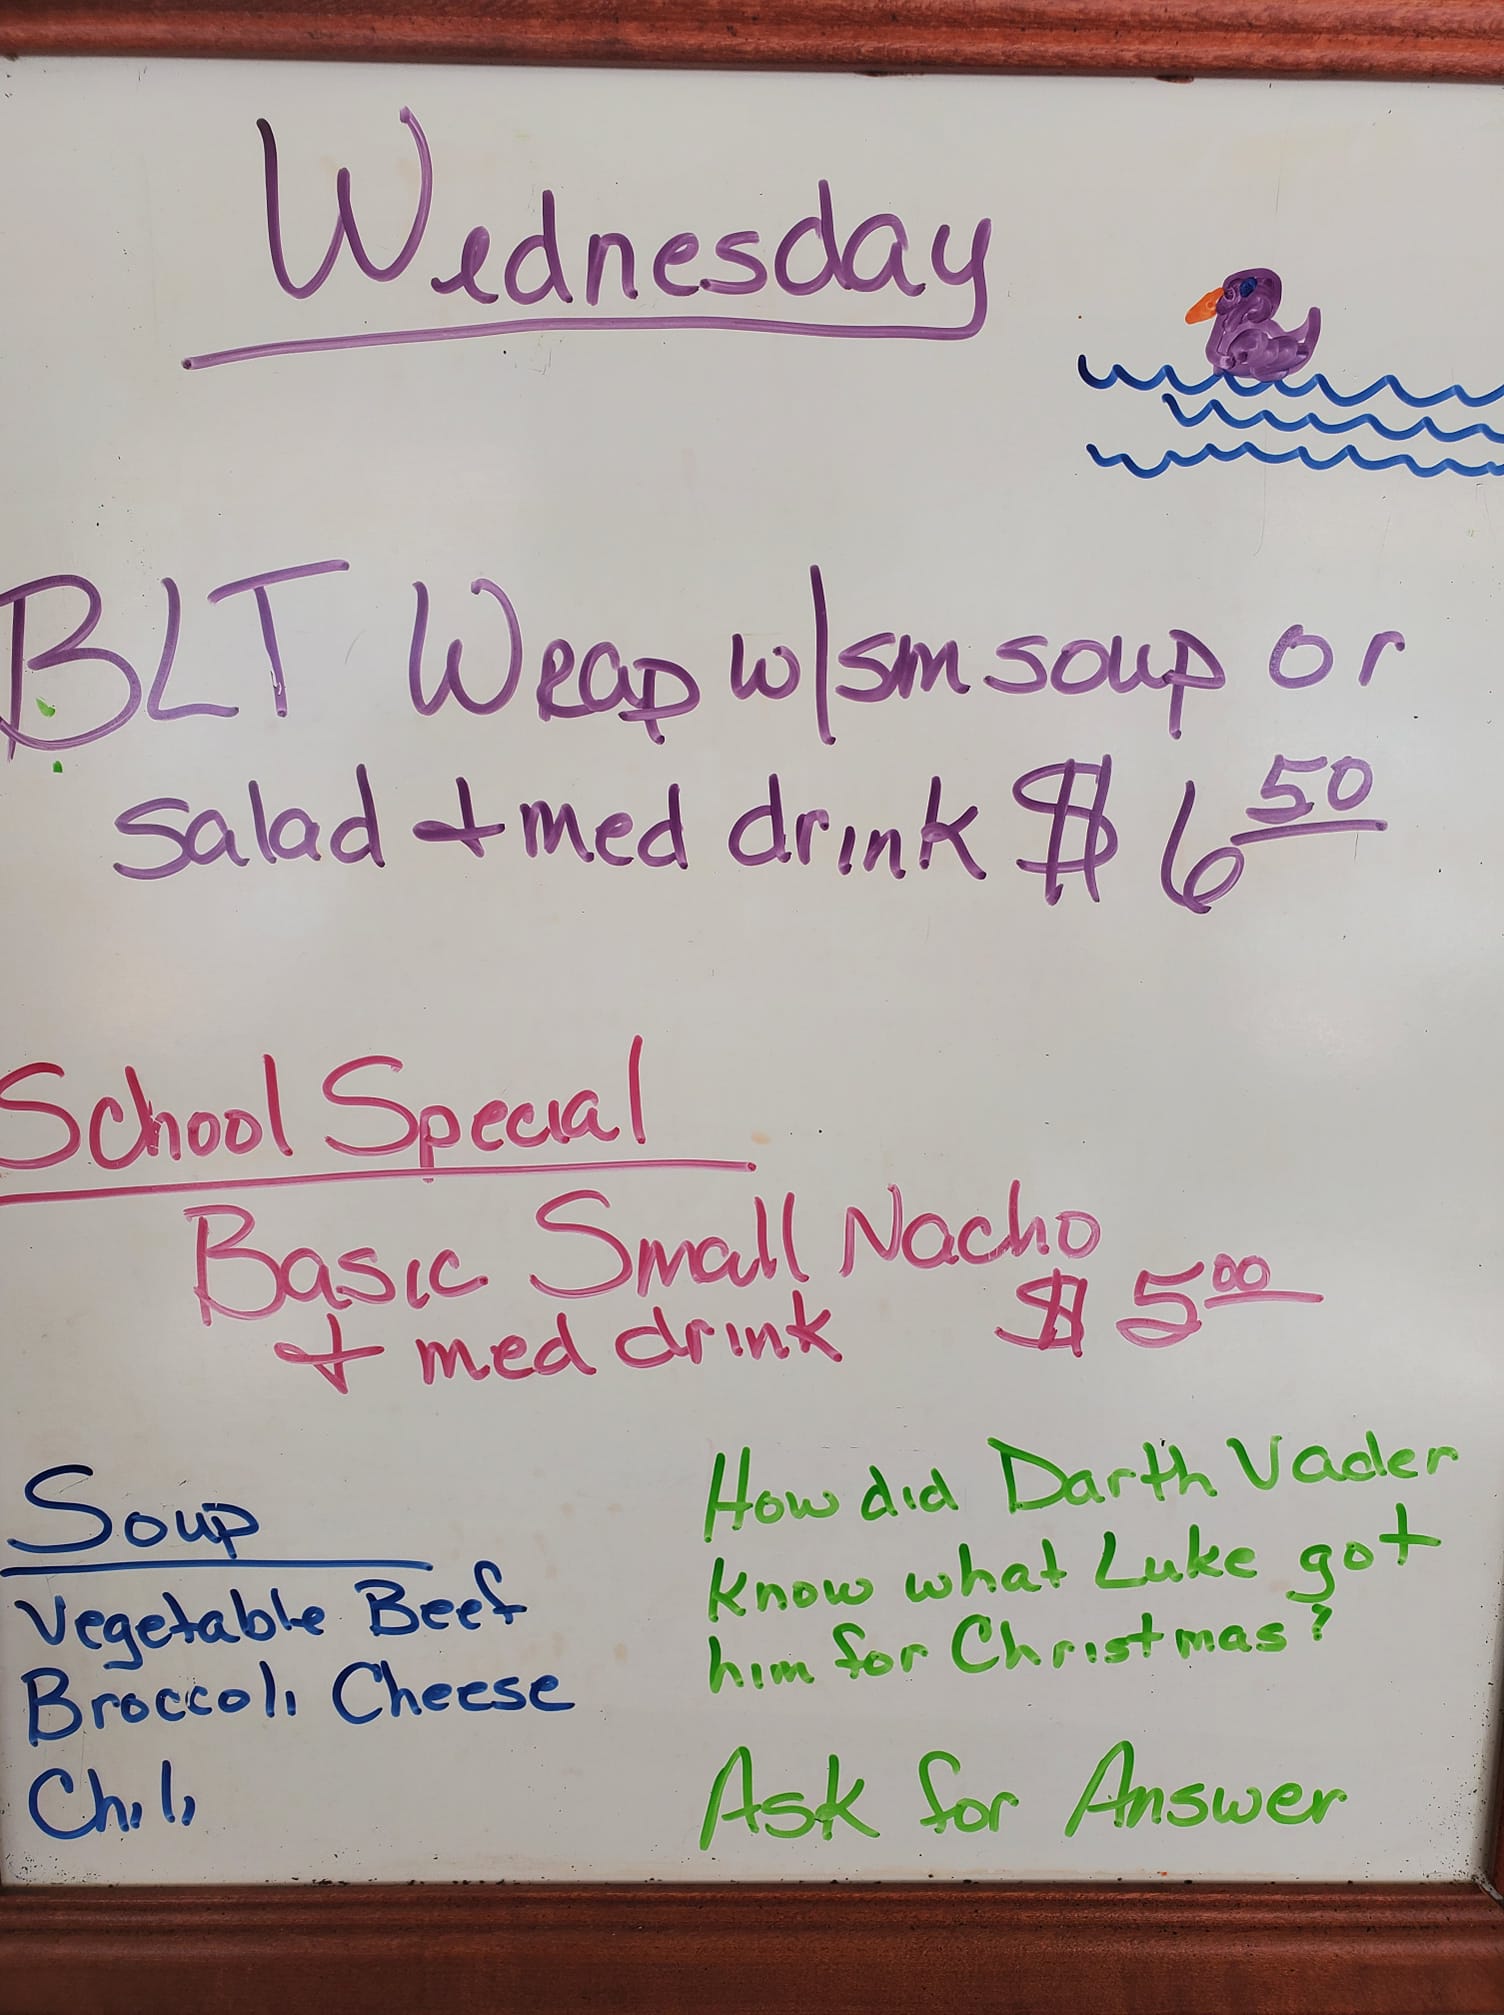 Wednesday
BLT Wrap w/sm soup or
salad + med drink $6.50
School Special
Basic Small Nacho
+ med drink $5.00
Soup
Vegetable Beef
Broccoli Cheese
Chili
How did Darth Vader
know what Luke got
him for Christmas?
Ask for Answer